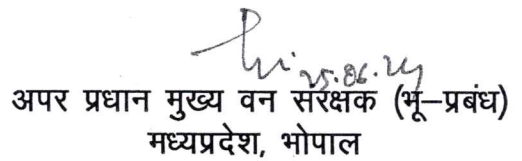 25.06.24
अपर प्रधान मुख्य वन संरक्षक (भू–प्रबंध)
मध्यप्रदेश, भोपाल